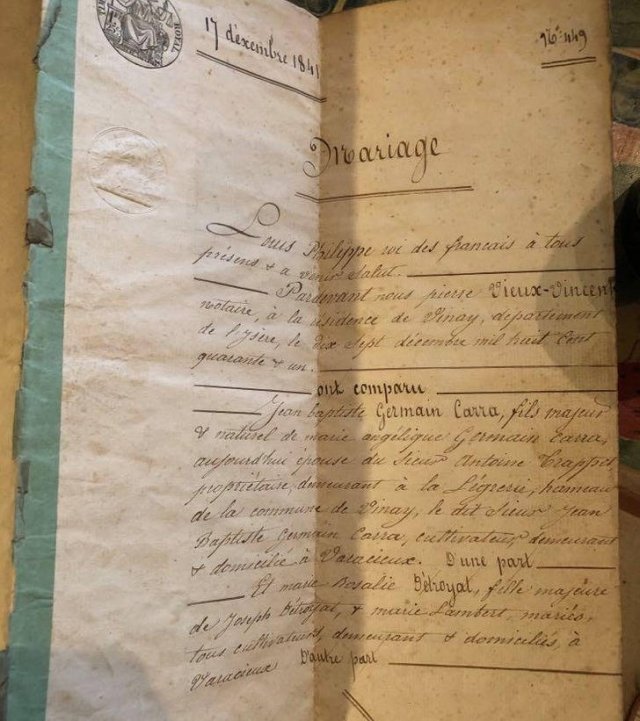 ROYAL
17 décembre 1841
N° 449
Mariage
Louis Philippe roi des français à tous
présens & à venir salut.
Pardevant nous pierre Vieux-Vincent
notaire, à la résidence de Vinay, département
de l'ysère, le dix sept décembre mil huit cent
quarante & un.
ont comparu
Jean baptiste Germain Carra, fils majeur
& naturel de marie angélique Germain Carra,
aujourd'hui épouse du sieur Antoine Trappet
propriétaire, demeurant à la Légrerie, hameau
de la commune de Vinay, le dit sieur Jean
Baptiste Germain Carra, cultivateur, demeurant
& domicilié à Varacieux. D'une part
Et marie Rosalie Détroyat, fille majeure
de Joseph Détroyat, & marie Lambert, mariés,
tous cultivateurs, demeurant & domiciliés à
Varacieux D'autre part